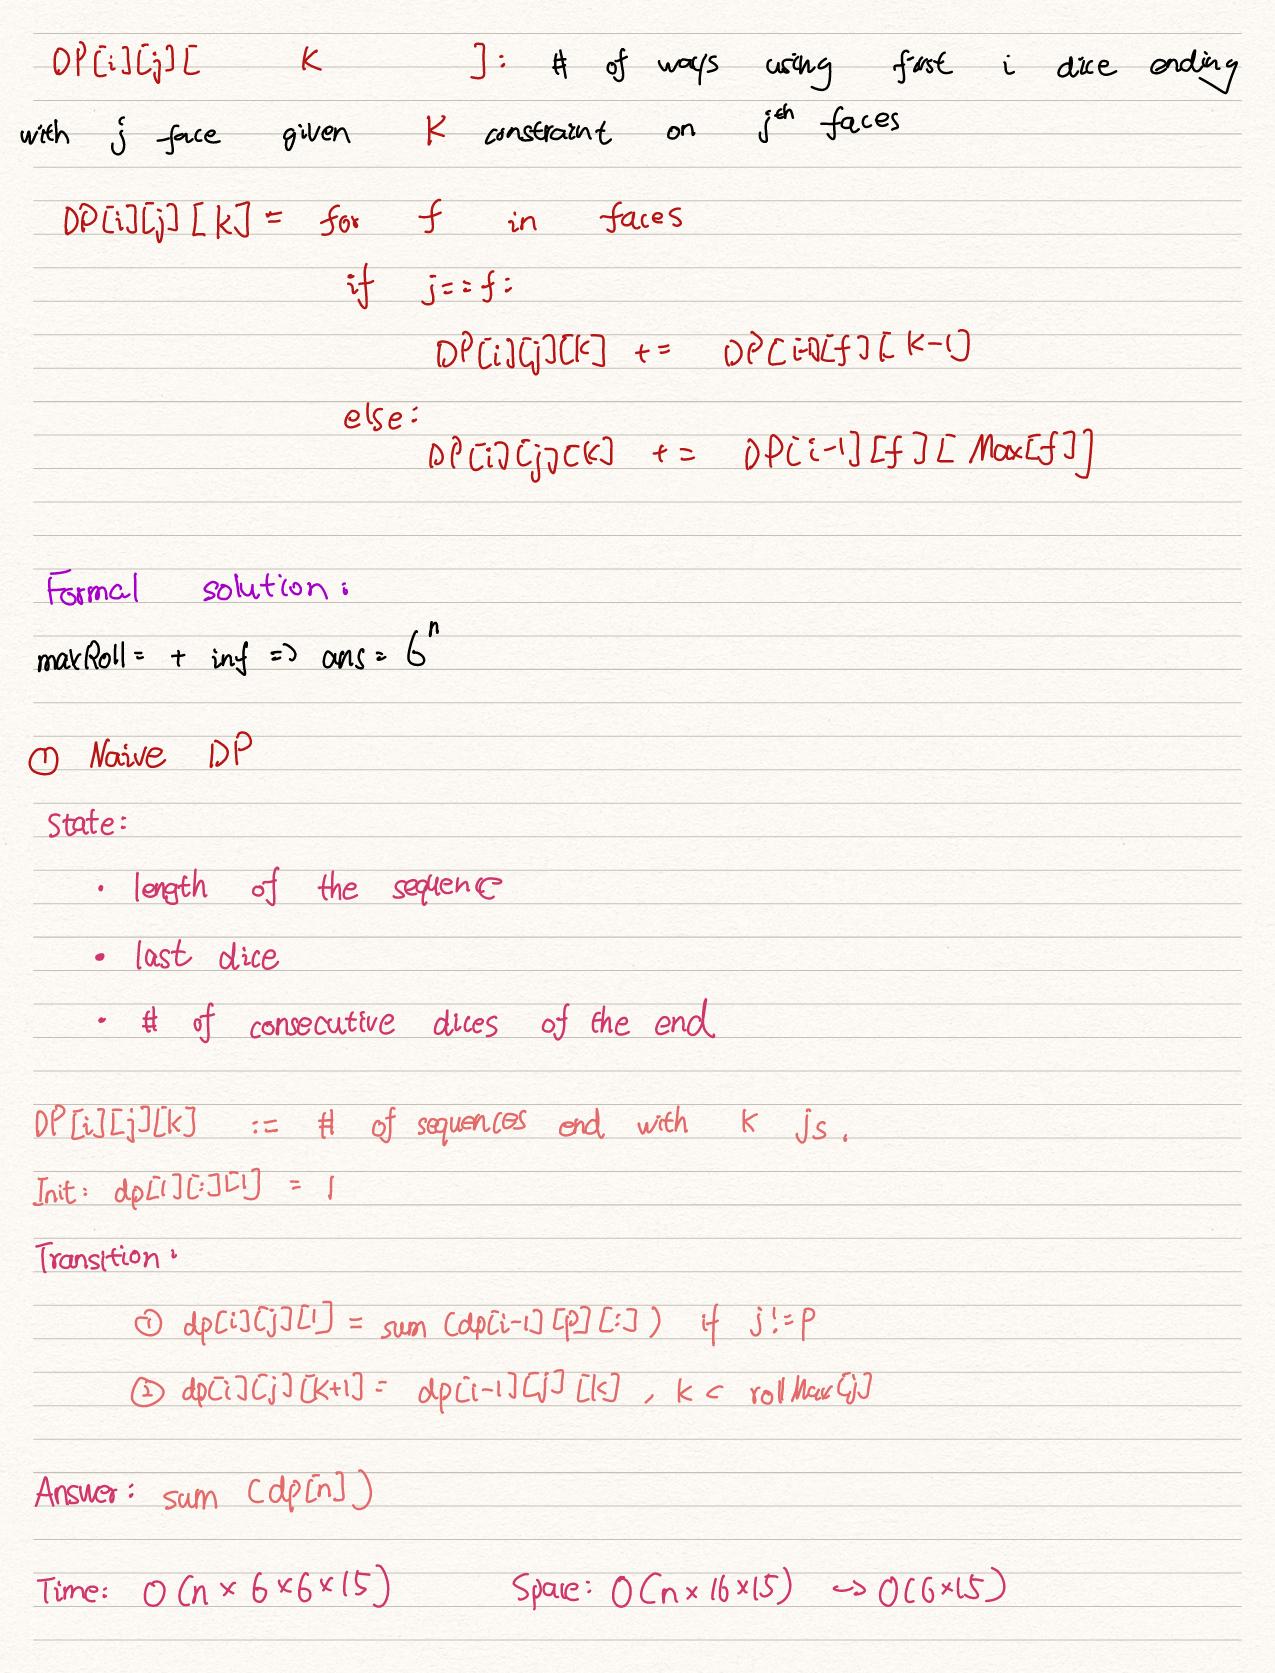 DP[i][j][ K ]: # of ways using first i dice ending
with j face given K constraint on jth faces
DP[i][j][k] = for f in faces
if j==f:
DP[i][j][k] += DP[i-1][f][k-1]
else:
DP[i][j][k] += DP[i-1][f][Max[f]]
Formal solution:
maxRoll = + inf => ans = 6^n
① Naive DP
State:
• length of the sequence
• last dice
• # of consecutive dices of the end
DP[i][j][k] := # of sequences end with k js.
Init: dp[1][:][1] = 1
Transition:
① dp[i][j][1] = sum (dp[i-1][p][:]) if j!=p
② dp[i][j][k+1] = dp[i-1][j][k], k < rollMax[j]
Answer: sum (dp[n])
Time: O(n × 6 × 6 × 15) Space: O(n × 16 × 15) -> O(6×15)